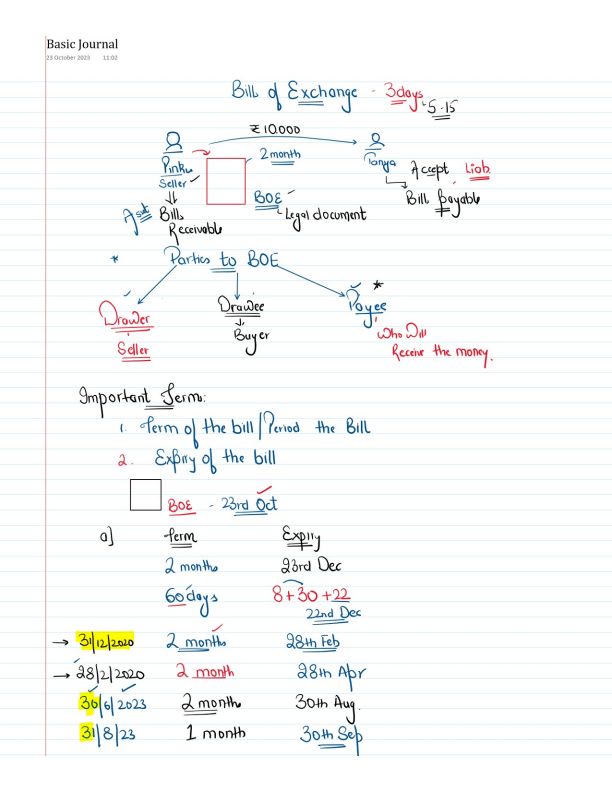 Basic Journal
23 October 2023 11:02
Bill of Exchange - 3days
5-15
₹10.000
Pinky
Tanya
2 month
Seller
Accept Liab.
Bill Payable
BOE
Legal document
Asset
Bills
Receivable
* Parties to BOE
*
Drawer
Drawee
Payee
Seller
Buyer
Who Will
Receive the money.
Important Term:
1. Term of the bill/Period the Bill
2. Expiry of the bill
BOE - 23rd Oct
a] Term Expiry
2 months 23rd Dec
60 days 8+30+22
22nd Dec
→ 31/12/2020 2 months 28th Feb
→ 28/2/2020 2 month 28th Apr
30/6/2023 2 month 30th Aug.
31/8/23 1 month 30th Sep